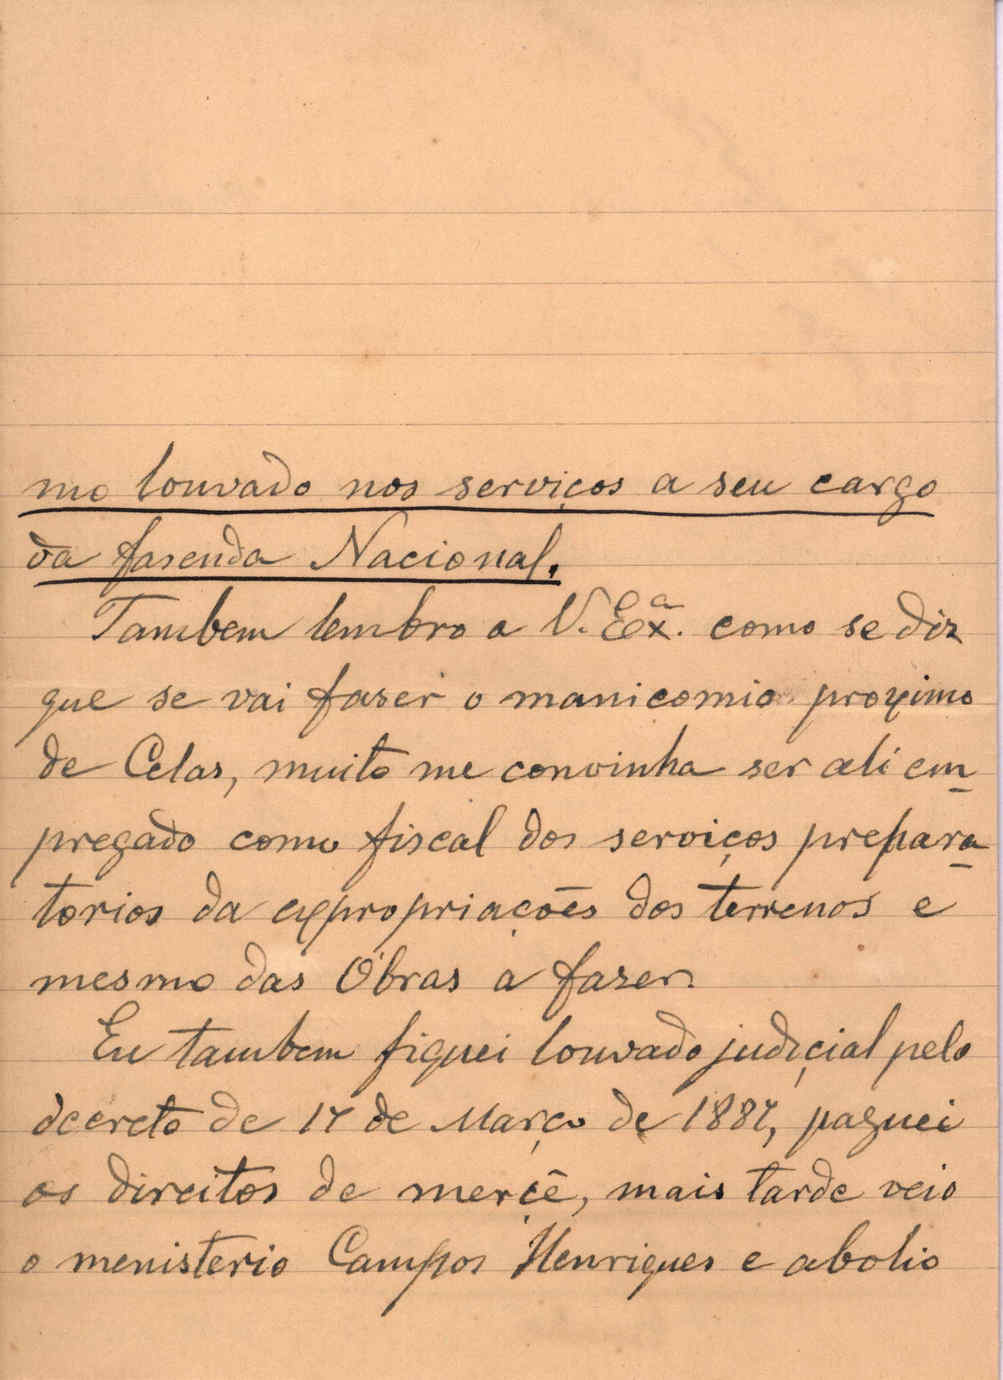 mo louvado nos serviços a seu cargo
da fasenda Nacional.
Tambem lembro a V. Exª. como se diz
que se vai faser o manicomio proximo
de Celas, muito me convinha ser ali em
pregado como fiscal dos serviços prepara
torios da expropriações dos terrenos e
mesmo das Obras a faser.
Eu tambem fiquei louvado judiçial pelo
decreto de 17 de Março de 1887, paguei
os direitos de merçê, mais tarde veio
o menisterio Campos Henriques e abolio